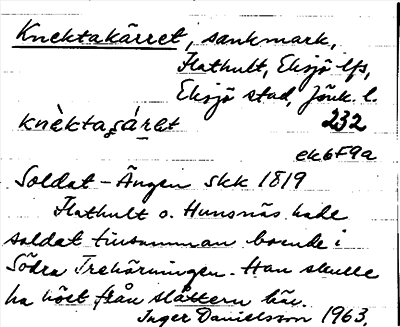 Knektakärret, sankmark,
Flathult, Eksjö lfs,
Eksjö stad, Jönk. l.
knèktaçáret 232
ek6F9a
Soldat-Ängen skk 1819
Flathult o. Hunsnäs hade
soldat tinsamman boende i
Södra Trehörningen. Han skulle
ha höet från slåttern här.
Inger Danielsson 1963.